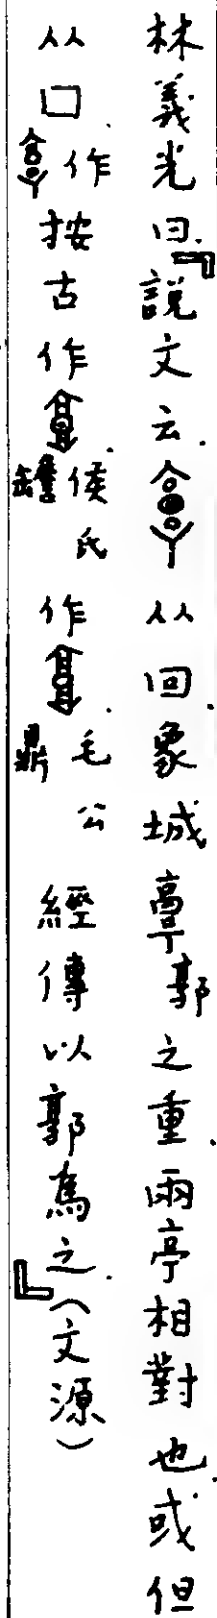 林義光曰『說文云𩫖从回象城𩫖郭之重兩亭相對也或但
从囗作𩫖按古作𩫖侯氏罐作𩫖毛公鼎經傳以郭為之』（文源）